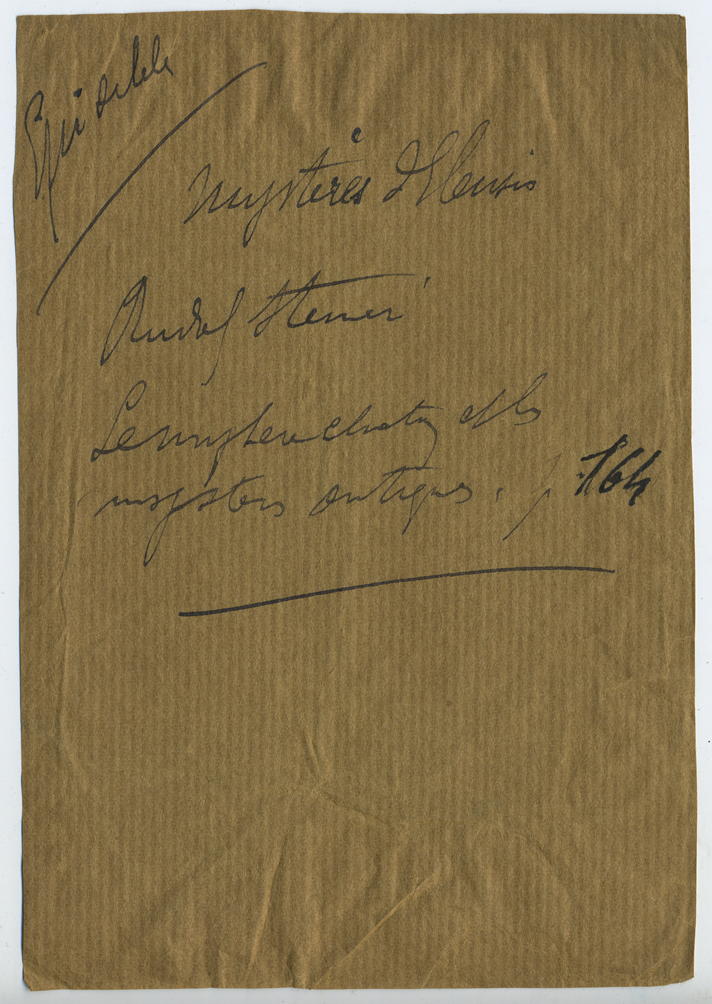 Mystères d'Eleusis
Rudolf Steiner
Le mystère chrétien et les
mystères antiques. p. 164